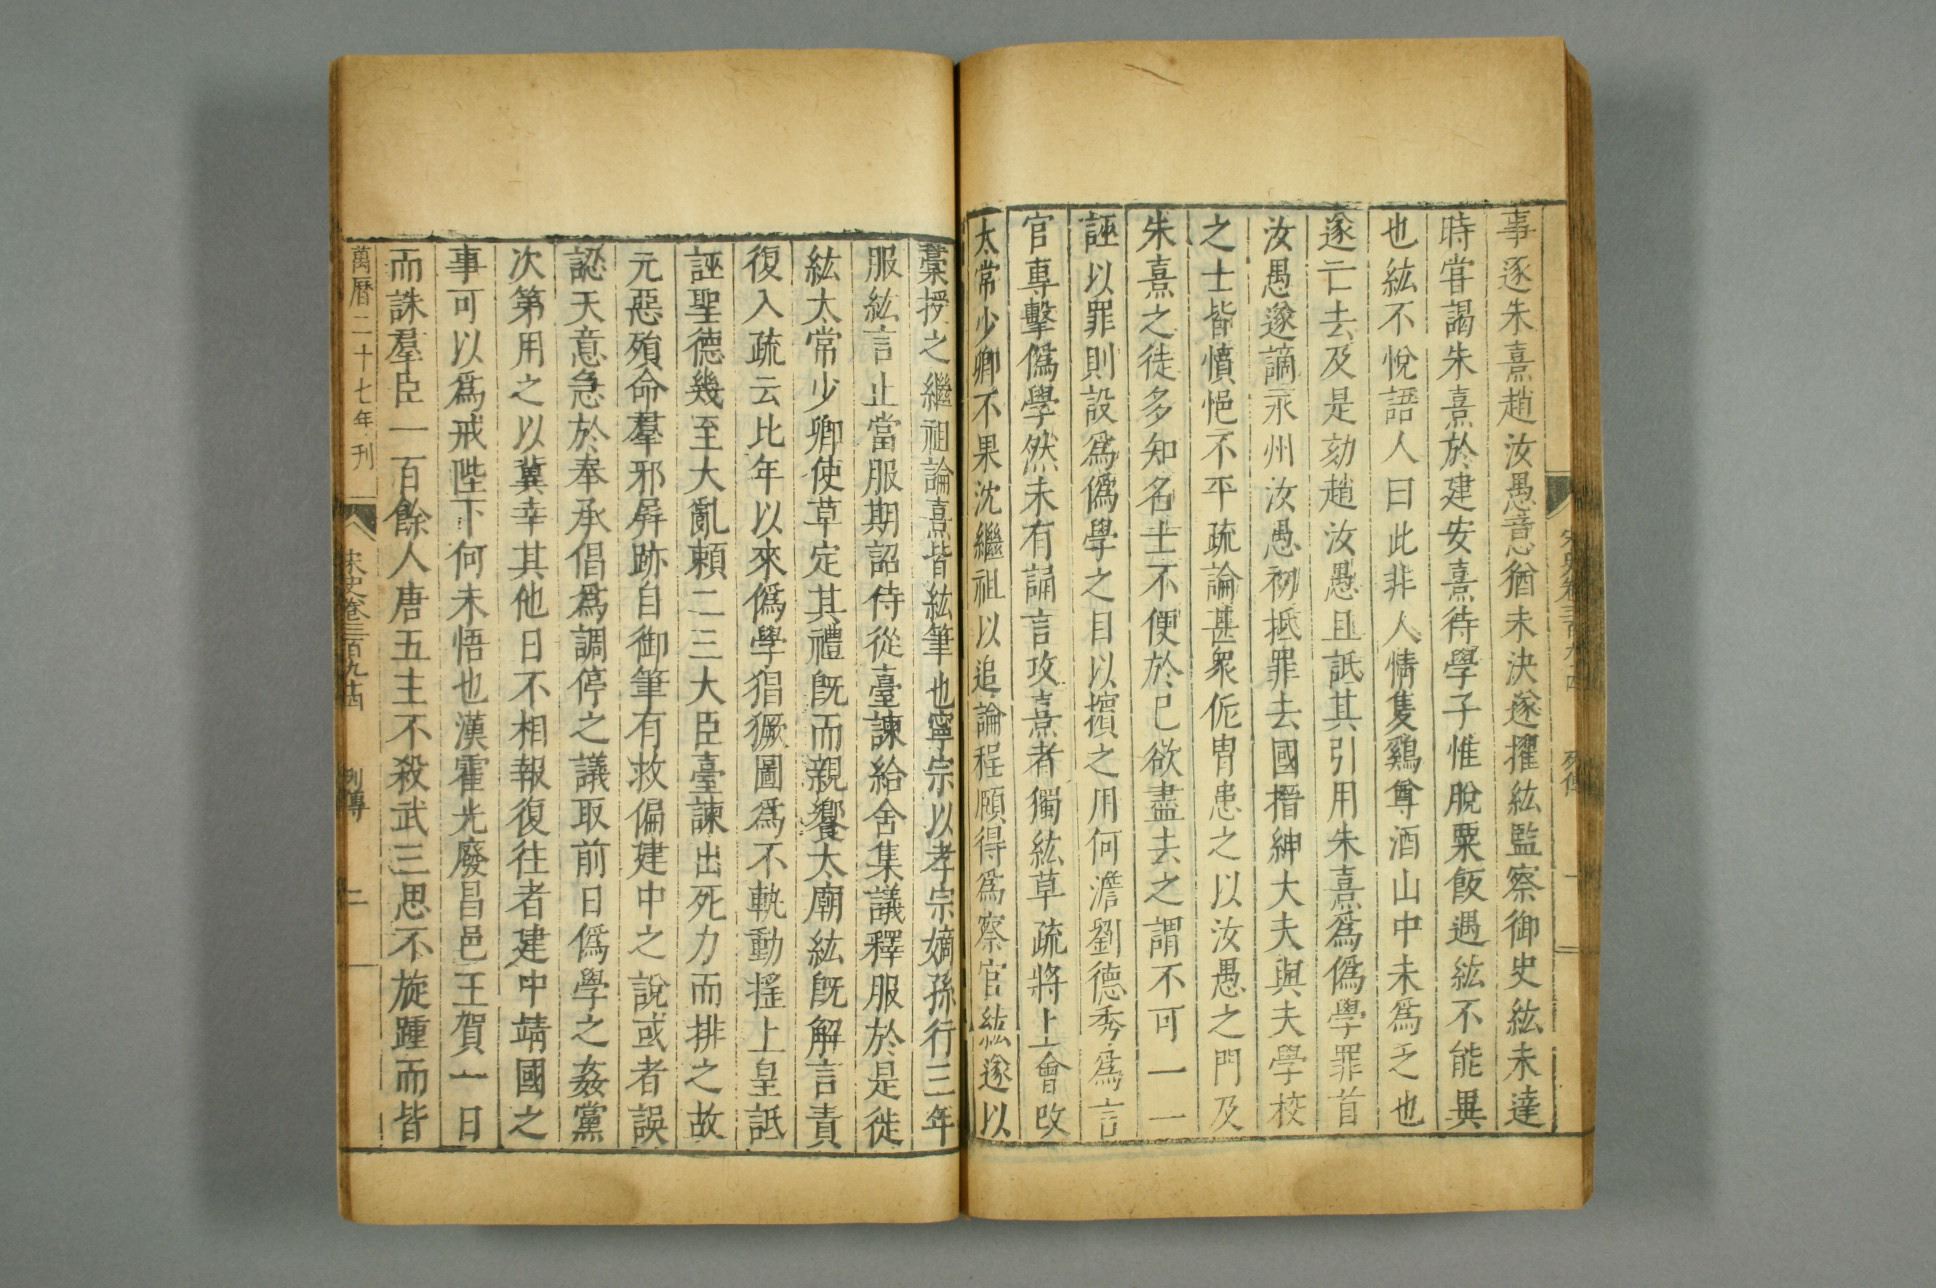 事逐朱熹趙汝愚意猶未決遂擢紘監察御史紘未達
時甞謁朱熹於建安熹待學子惟脫粟飯遇紘不能異
也紘不悅語人曰此非人情隻鷄尊酒山中未爲乏也
遂亡去及是劾趙汝愚且詆其引用朱熹爲僞學罪首
汝愚遂謫永州汝愚初抵罪去國搢紳大夫與夫學校
之士皆憤悒不平疏論甚衆侂胄患之以汝愚之門及
朱熹之徒多知名士不便於己欲盡去之謂不可一一
誣以罪則設爲僞學之目以擯之用何澹劉德秀爲言
官專擊僞學然未有誦言攻熹者獨紘草疏將上會改
太常少卿不果沈繼祖以追論程頤得爲察官紘遂以
藁授之繼祖論熹皆紘筆也寧宗以孝宗嫡孫行三年
服紘言止當服期詔侍從臺諫給舍集議釋服於是徙
紘太常少卿使草定其禮旣而親饗太廟紘旣解言責
復入疏云比年以來僞學猖獗圖爲不軌動搖上皇詆
誣聖德幾至大亂賴二三大臣臺諫出死力而排之故
元惡殞命羣邪屏跡自御筆有救偏建中之說或者誤
認天意急於奉承倡爲調停之議取前日僞學之姦黨
次第用之以冀幸其他日不相報復往者建中靖國之
事可以爲戒陛下何未悟也漢霍光廢昌邑王賀一日
而誅羣臣一百餘人唐五主不殺武三思不旋踵而皆
萬曆二十七年刊
宋史卷三百九十四
列傳
二